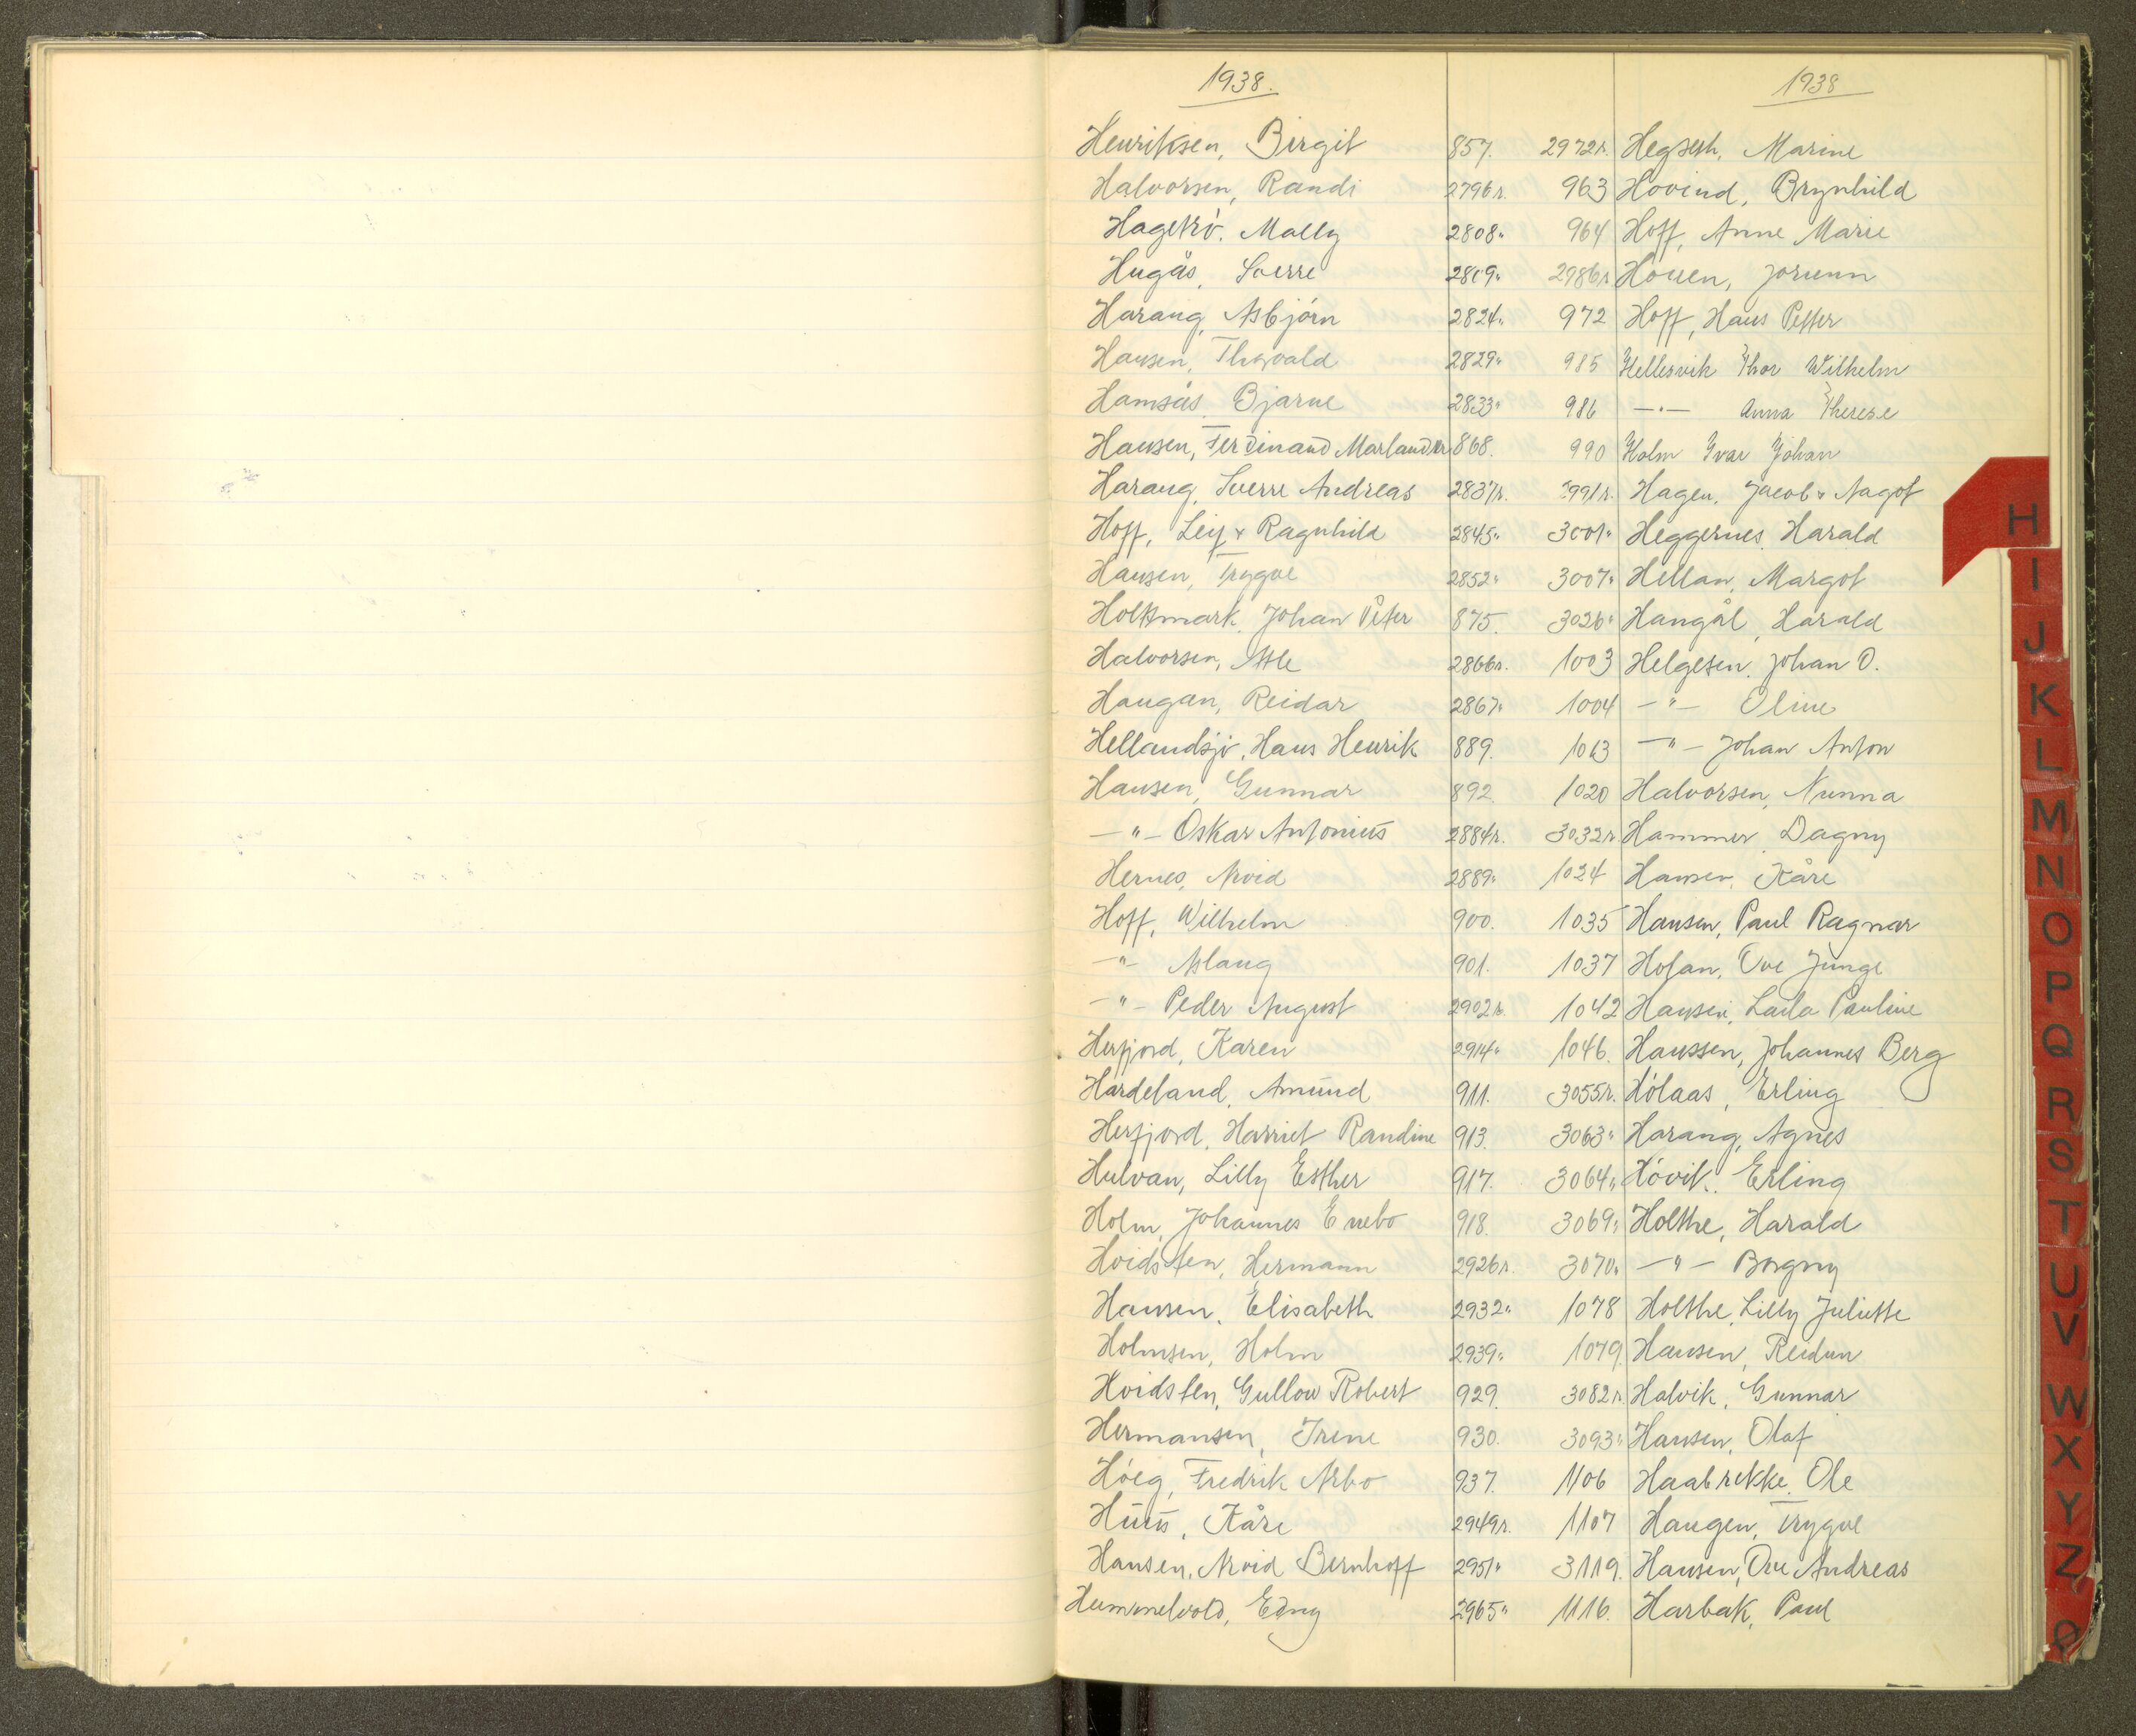 1938.
Henriksen, Birgit 857.
Halvorsen, Randi 2796r.
Hagetrö. Mally 2808"
Hugås, Sverre 2819"
Harang, Asbjörn 2824"
Hansen, Thorvald 2829"
Hamsås, Bjarne 2833"
Hansen, Ferdinand Marlander 868.
Harang, Sverre Andreas 2837r.
Hoff, Leif & Ragnhild 2845"
Hansen, Trygve 2852"
Holtsmark, Johan Peter 875.
Halvorsen, Atle 2866r.
Haugan, Reidar 2867"
Hellandsjö, Hans Henrik 889.
Hansen, Gunnar 892.
—"— Oskar Antonius 2884r.
Hernes, Arvid 2889"
Hoff, Wilhelm 900.
—"— Aslaug 901.
—"— Peder August 2902r.
Herfjord, Karen 2914"
Hardeland, Amund 911.
Herfjord, Harriet Randine 913.
Hulvan, Lilly Esther 917.
Holm, Johannes Enebo 918.
Hvidsten, Hermann 2926r.
Hansen, Elisabeth 2932"
Holmsen, Holm 2939"
Hvidsten, Gullow Robert 929.
Hermansen, Irene 930.
Höeg, Fredrik Arbo 937.
Huus, Kåre 2949r.
Hansen, Arvid Bernhoff 2951"
Hummelvold, Edny 2965"
1938
2972r. Hegseth, Marine
963 Hovind, Brynhild
964 Hoff, Anne Marie
2986r. Houen, Jorunn
972 Hoff, Hans Petter
985 Hellesvik Thor Wilhelm
986 —"— Anna Therese
990 Holm Ivar Johan
2991r. Hagen, Jacob & Nagot
3001" Heggernes, Harald
3007" Hellan, Margot
3026" Hangål, Harald
1003 Helgesen, Johan O.
1004 —"— Oline
1013 —"— Johan Anton
1020 Halvorsen, Nunna
3032r. Hammer, Dagny
1024 Hansen, Kåre
1035 Hansen, Paul Ragnar
1037 Hofan, Ove Junge
1042 Hansen, Laila Pauline
1046. Hanssen, Johannes Berg
3055r. Hölaas, Erling
3063" Harang, Agnes
3064" Hövik, Erling
3069" Holthe, Harald
3070" —"— Borgny
1078 Holthe, Lilly Juliette
1079. Hansen, Reidun
3082r. Halvik, Gunnar
3093" Hansen, Olaf
1106 Haabrekke, Ole
1107 Haugen, Trygve
3119. Hansen, Ove Andreas
1116. Harbak, Paul
H
I
J
K
L
M
N
O
P
Q
R
S
T
U
V
W
X
Y
Z
Ø